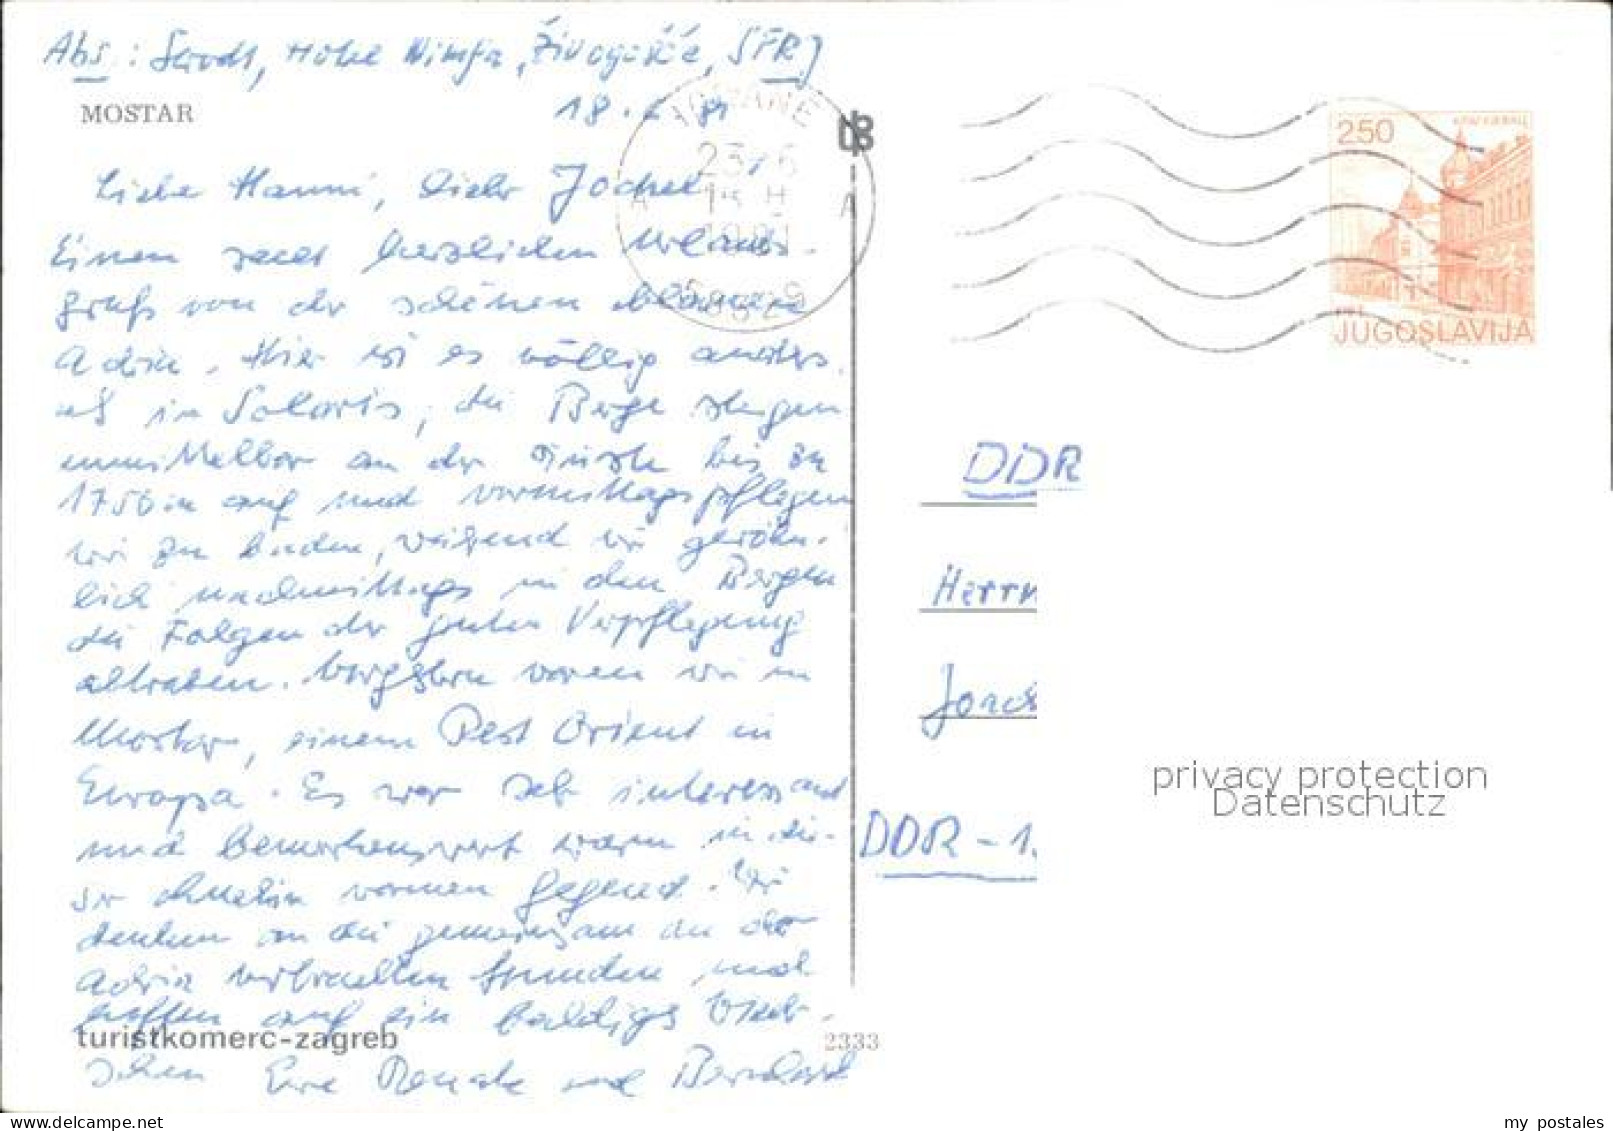 Abs.: Hotel Nimfa, Živogošće, SFRJ
MOSTAR
18. 6. 81
Liebe Hanni, lieber Jochen!
Einen recht herzlichen Urlaubs-
gruß von der schönen blauen
Adria. Hier ist es völlig anders
als in Solaris, die Berge steigen
unmittelbar an der Küste bis zu
1750 m auf und vormittags pflegen
wir zu baden, während wir gewöhn-
lich nachmittags in den Bergen
die Folgen der guten Verpflegung
abtraben. Vorgestern waren wir in
Mostar, einem Rest Orient in
Europa. Es war sehr interessant
und bemerkenswert warm in die-
ser ohnehin warmen Gegend. Wir
denken an die gemeinsam an der
Adria verbrachten Stunden und
hoffen auf ein baldiges Wieder-
sehen Eure Renate und Bernhard
turistkomerc-zagreb
2333
23. 6
1981
58329
2.50
JUGOSLAVIJA
DDR
Herrn
DDR - 1.
privacy protection
Datenschutz
my postales